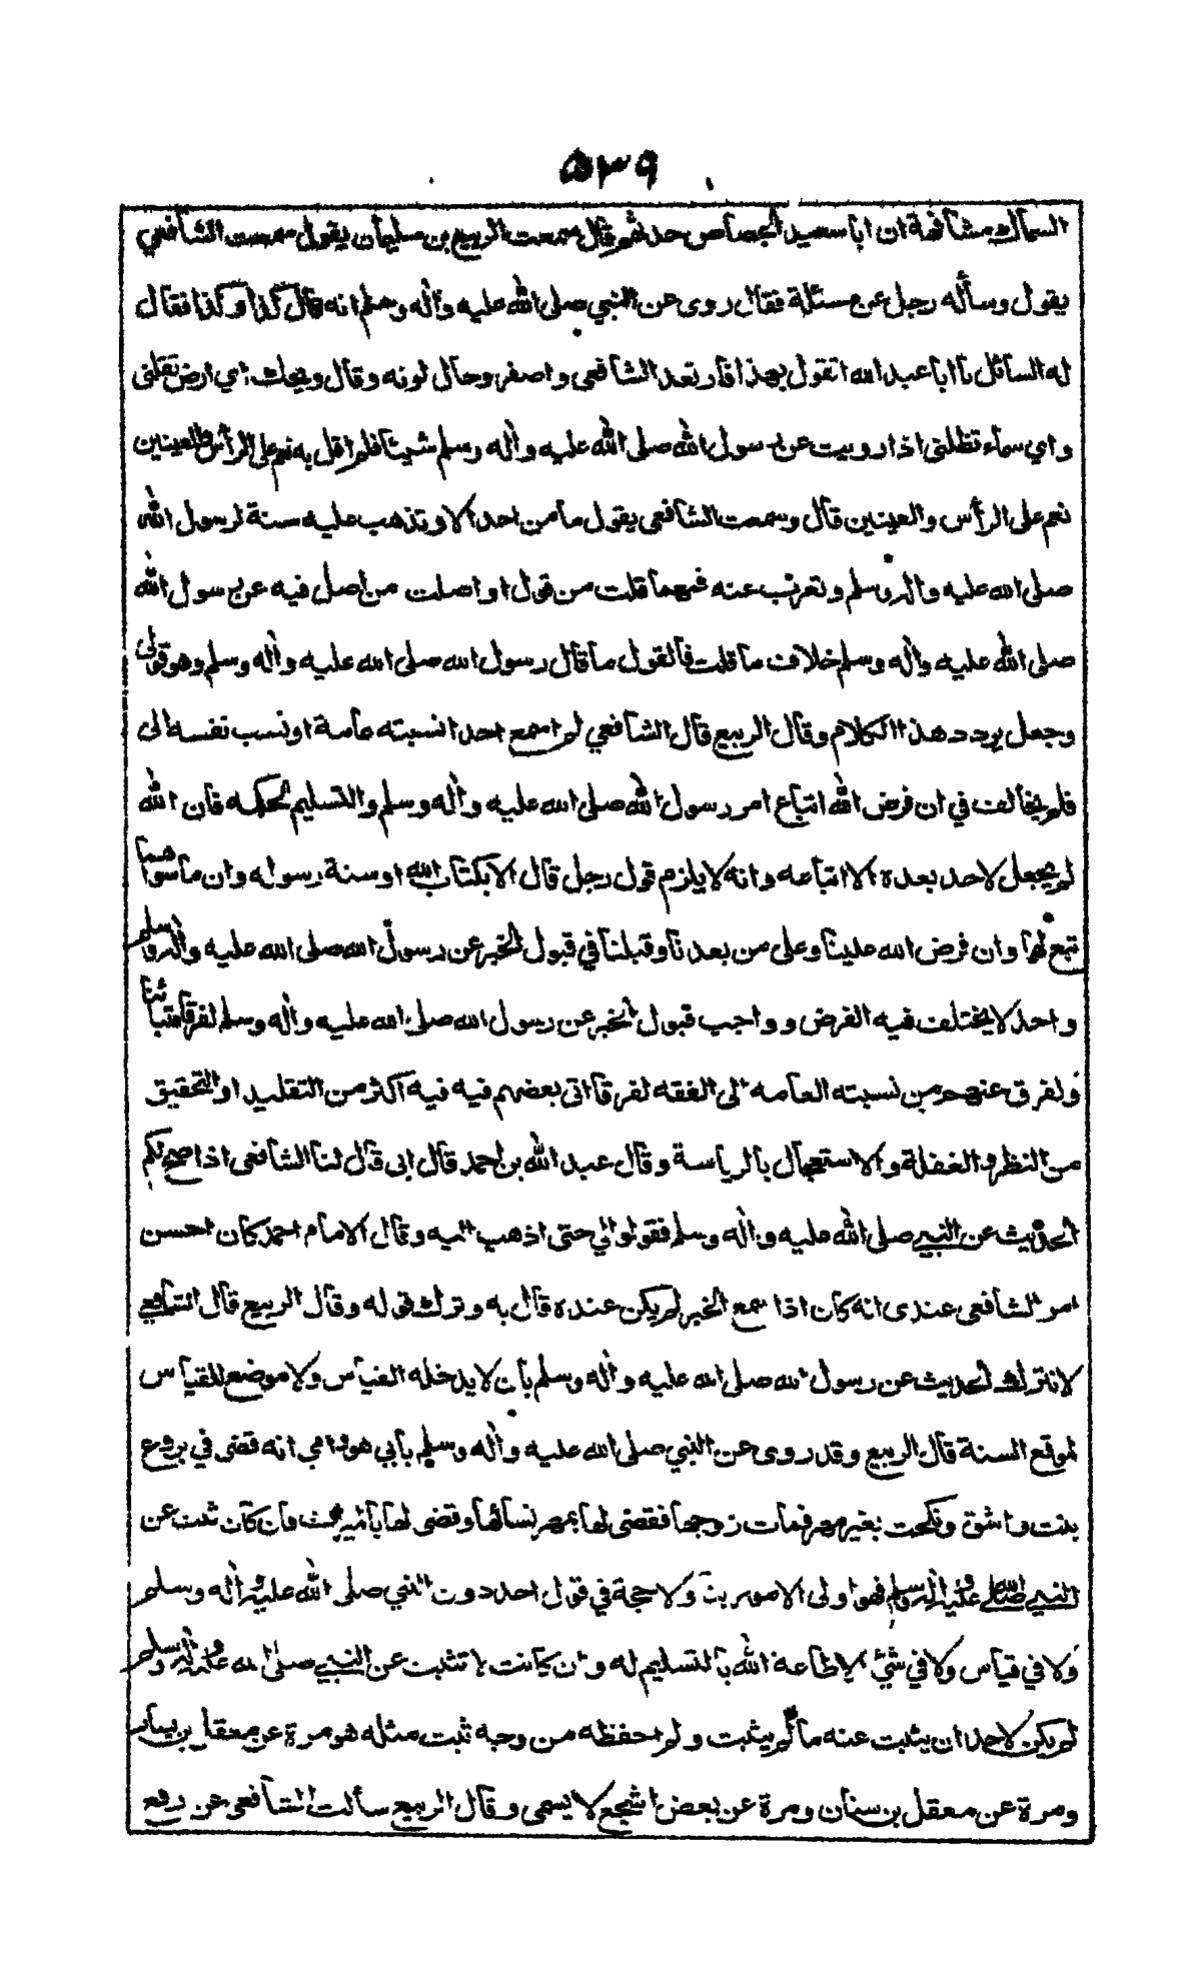 ٥٣٩
السماك مشافهة ان ابا سعيد الجصاص حدثهم قال سمعت الربيع بن سليمان يقول سمعت الشافعي
يقول وسأله رجل عن مسئلة فقال روى عن النبي صلى الله عليه وأله وسلم انه قال كذا وكذا فقال
له السائل يا ابا عبد الله اتقول بهذا فارتعد الشافعي واصفر وحال لونه وقال ويحك اي ارض تقلنى
واي سماء تظلنى اذا رويت عن رسول الله صلى الله عليه وأله وسلم شيئا فلم اقل به نعم على الرأس والعينين
نعم على الرأس والعينين قال وسمعت الشافعي يقول ما من احد الا وتذهب عليه سنة لرسول الله
صلى الله عليه واله وسلم وتعزب عنه فمهما قلت من قول او اصلت من اصل فيه عن رسول الله
صلى الله عليه وأله وسلم خلاف ما قلت فالقول ما قال رسول الله صلى الله عليه وأله وسلم وهو قولى
وجعل يردد هذا الكلام وقال الربيع قال الشافعي لم اسمع احدا نسبته عامة او نسب نفسه الى
فلم يخالف في ان فرض الله اتباع امر رسول الله صلى الله عليه وأله وسلم والتسليم لحكمه فان الله
لم يجعل لاحد بعده الا اتباعه وانه لا يلزم قول رجل قال الا بكتاب الله او سنة رسوله وان ما سواهما
تبع لهما وان فرض الله علينا وعلى من بعدنا وقبلنا في قبول الخبر عن رسول الله صلى الله عليه واله وسلم
واحد لا يختلف فيه الفرض وواجب قبول الخبر عن رسول الله صلى الله عليه وأله وسلم لفرقا متباثنا
ولفرق عنهم من نسبته العامه الى الفقه لفرقا اتى بعضهم فيه فيه اكثر من التقليد او التحقيق
من النظر والغفلة والاستعجال بالرياسة وقال عبد الله بن احمد قال ابى قال لنا الشافعى اذا صح لكم
الحديث عن النبي صلى الله عليه واله وسلم فقولوا لي حتى اذهب اليه وقال الامام احمد كان احسن
امر الشافعى عندى انه كان اذا سمع الخبر لم يكن عنده قال به وترك قوله وقال الربيع قال الشافعي
لا نترك الحديث عن رسول الله صلى الله عليه وأله وسلم بان لا يدخله القياس ولا موضع للقياس
لموقع السنة قال الربيع وقد روى عن النبي صلى الله عليه وأله وسلم بابي هو وامي انه قضى في بروع
بنت واشق ونكحت بغير مهر فمات زوجها فقضى لها بمهر نسائها وقضى لها بالميراث فان كان ثبت عن
النبي صلى الله عليه واله وسلم فهو اولى الامور بنا ولا حجة في قول احد دون النبي صلى الله عليه واله وسلم
ولا في قياس ولا في شئ الا طاعة الله بالتسليم له وان كانت لا تثبت عن النبي صلى الله عليه واله وسلم
لم يكن لاحد ان يثبت عنه ما لم يثبت ولم احفظه من وجه ثبت مثله هو مرة عن معقل بن يسار
ومرة عن معقل بن سنان ومرة عن بعض اشجع لا يسمى وقال الربيع سألت الشافعى عن رفع